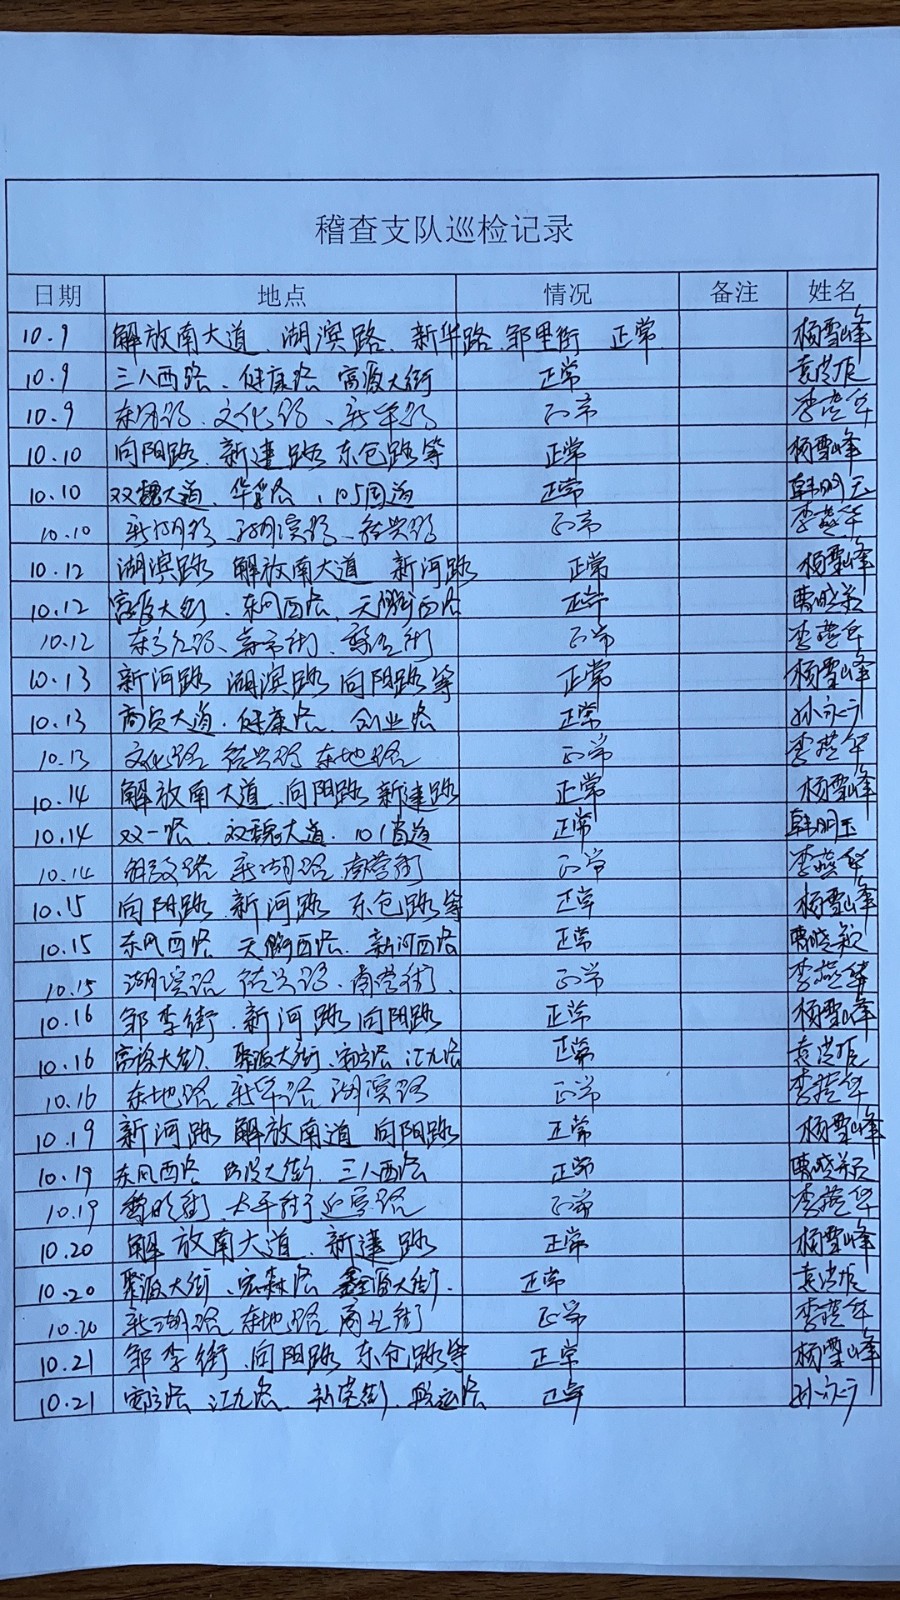 稽查支队巡检记录
日期 地点 情况 备注 姓名
10.9 解放南大道、湖滨路、新华路、邹里街 正常 杨雪峰
10.9 三八西路、健康路 富源大街 正常 袁洪恒
10.9 东方路、文化路、新华路 正常 李燕华
10.10 向阳路、新建路 东仓路等 正常 杨雪峰
10.10 双魏大道、华 路、105国道 正常 韩明玉
10.10 新湖路、湖滨路、 兴路 正常 李燕华
10.12 湖滨路 解放南大道 新河路 正常 杨雪峰
10.12 富源大街、东风西路、天衢西路 正常 曹晓颖
10.12 东方红路、 街、 街 正常 李燕华
10.13 新河路 湖滨路 向阳路等 正常 杨雪峰
10.13 商贸大道、健康路、创业路 正常 孙永广
10.13 文化路 兴路 东地路 正常 李燕华
10.14 解放南大道、向阳路 新建路 正常 杨雪峰
10.14 双一路、双魏大道、101省道 正常 韩明玉
10.14 解放路 新湖路 南营街 正常 李燕华
10.15 向阳路 新河路 东仓路等 正常 杨雪峰
10.15 东风西路 天衢西路、新河西路 正常 曹晓颖
10.15 湖滨路 兴路、南营街、 正常 李燕华
10.16 邹李街、新河路 向阳路 正常 杨雪峰
10.16 富源大街、聚源大街、 路 江九路 正常 袁洪恒
10.16 东地路 新华路 湖滨路 正常 李燕华
10.19 新河路 解放南道 向阳路 正常 杨雪峰
10.19 东风西路 大街、三八西路 正常 曹晓颖
10.19 街、太平街 迎宾路 正常 李燕华
10.20 解放南大道、新建路 正常 杨雪峰
10.20 聚源大街、宏森路 鑫源大街、 正常 袁洪恒
10.20 新湖路 东地路 街 正常 李燕华
10.21 邹李街、向阳路 东仓路等 正常 杨雪峰
10.21 路 江九路、 街、 路 正常 孙永广